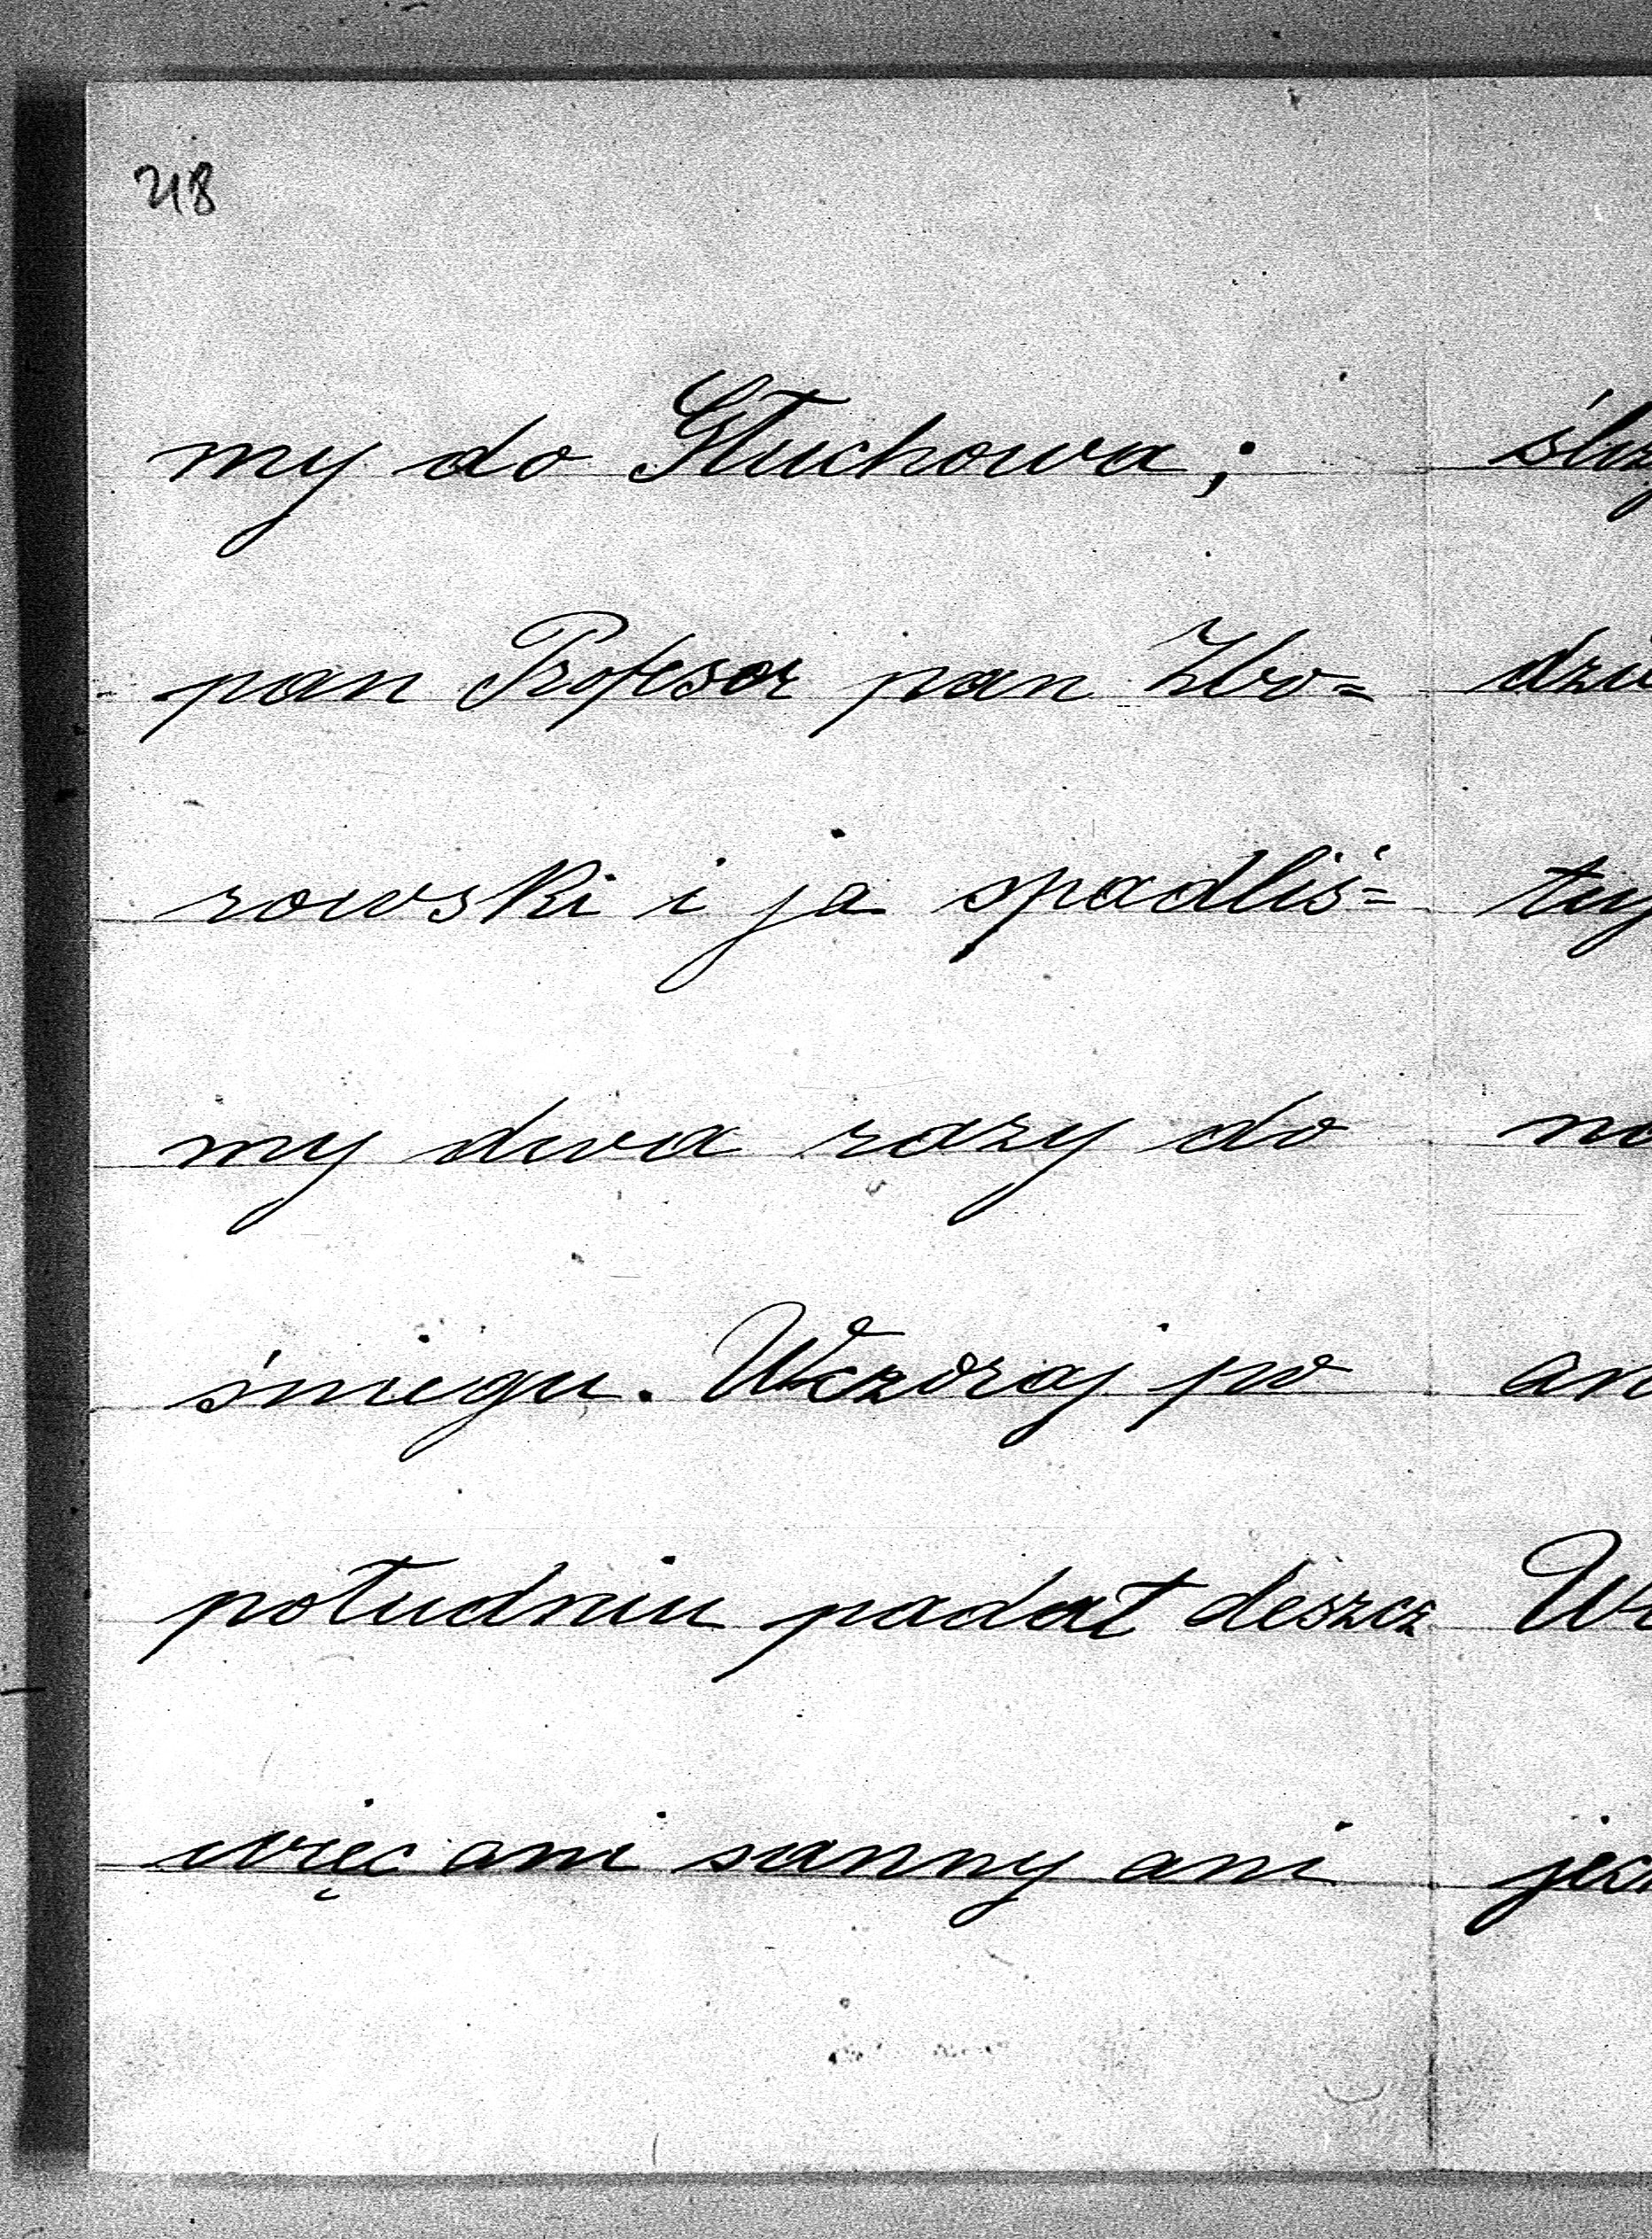 218
my do Głuchowa;
pan Profesor pan Zbo=
rowski i ja spadliś=
my dwa razy do
śniegu. Wczoraj po
południu padał deszcz
więc ani sanny ani